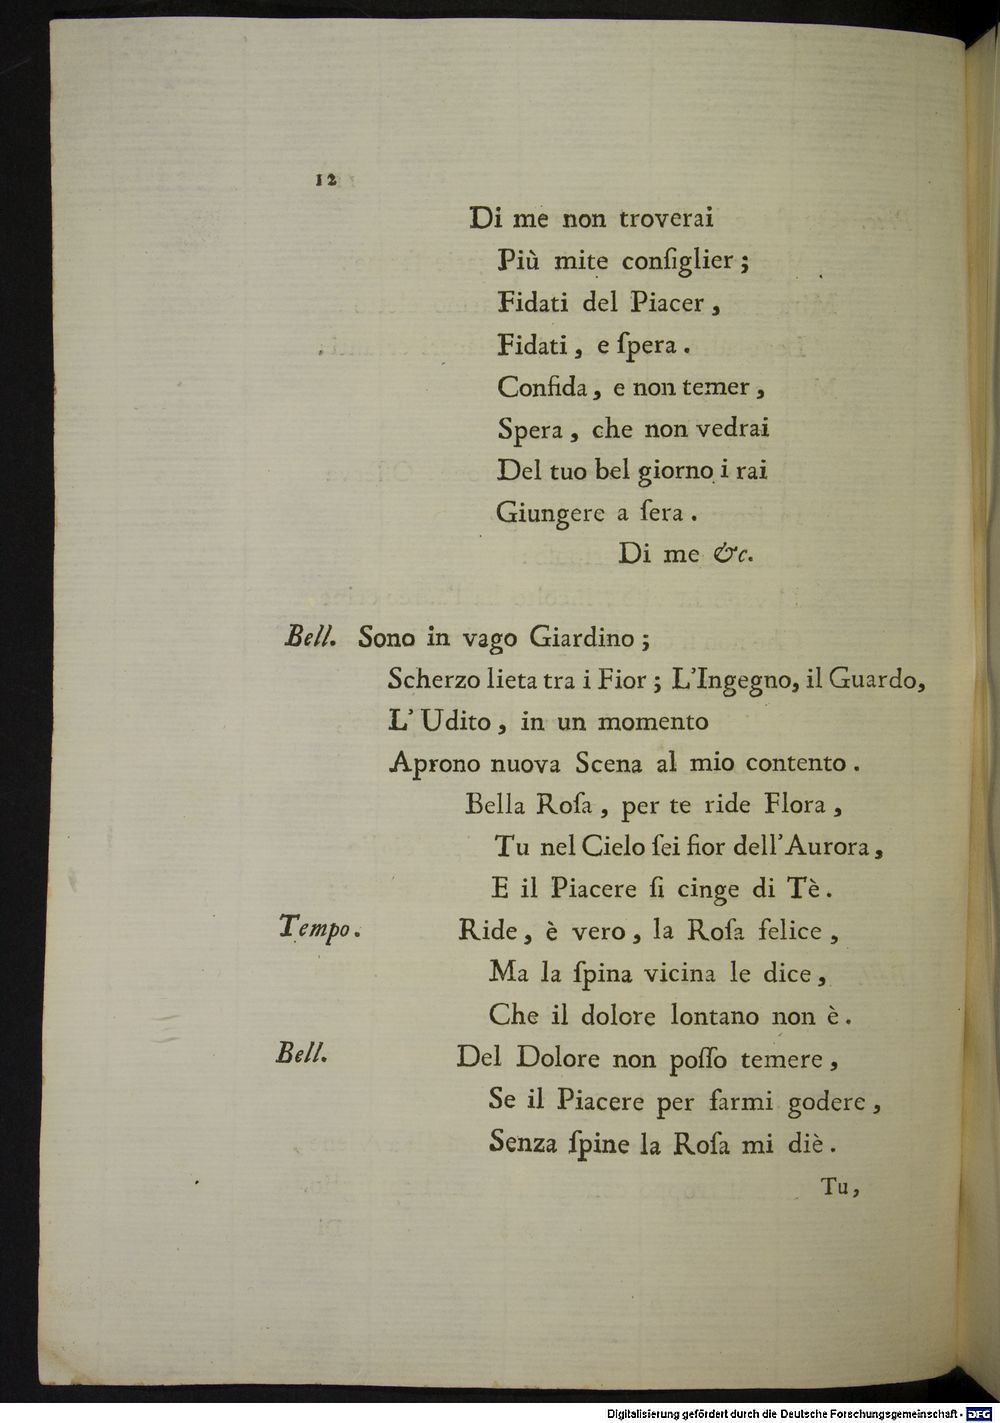 12
Di me non troverai
Più mite conſiglier ;
Fidati del Piacer ,
Fidati , e ſpera .
Confida , e non temer ,
Spera , che non vedrai
Del tuo bel giorno i rai
Giungere a ſera .
Di me &c.
Bell. Sono in vago Giardino ;
Scherzo lieta tra i Fior ; L'Ingegno, il Guardo,
L' Udito , in un momento
Aprono nuova Scena al mio contento .
Bella Roſa , per te ride Flora ,
Tu nel Cielo ſei fior dell'Aurora ,
E il Piacere ſi cinge di Tè .
Tempo. Ride , è vero , la Roſa felice ,
Ma la ſpina vicina le dice ,
Che il dolore lontano non è .
Bell. Del Dolore non poſſo temere ,
Se il Piacere per farmi godere ,
Senza ſpine la Roſa mi diè .
Tu,
Digitalisierung gefördert durch die Deutsche Forschungsgemeinschaft - DFG